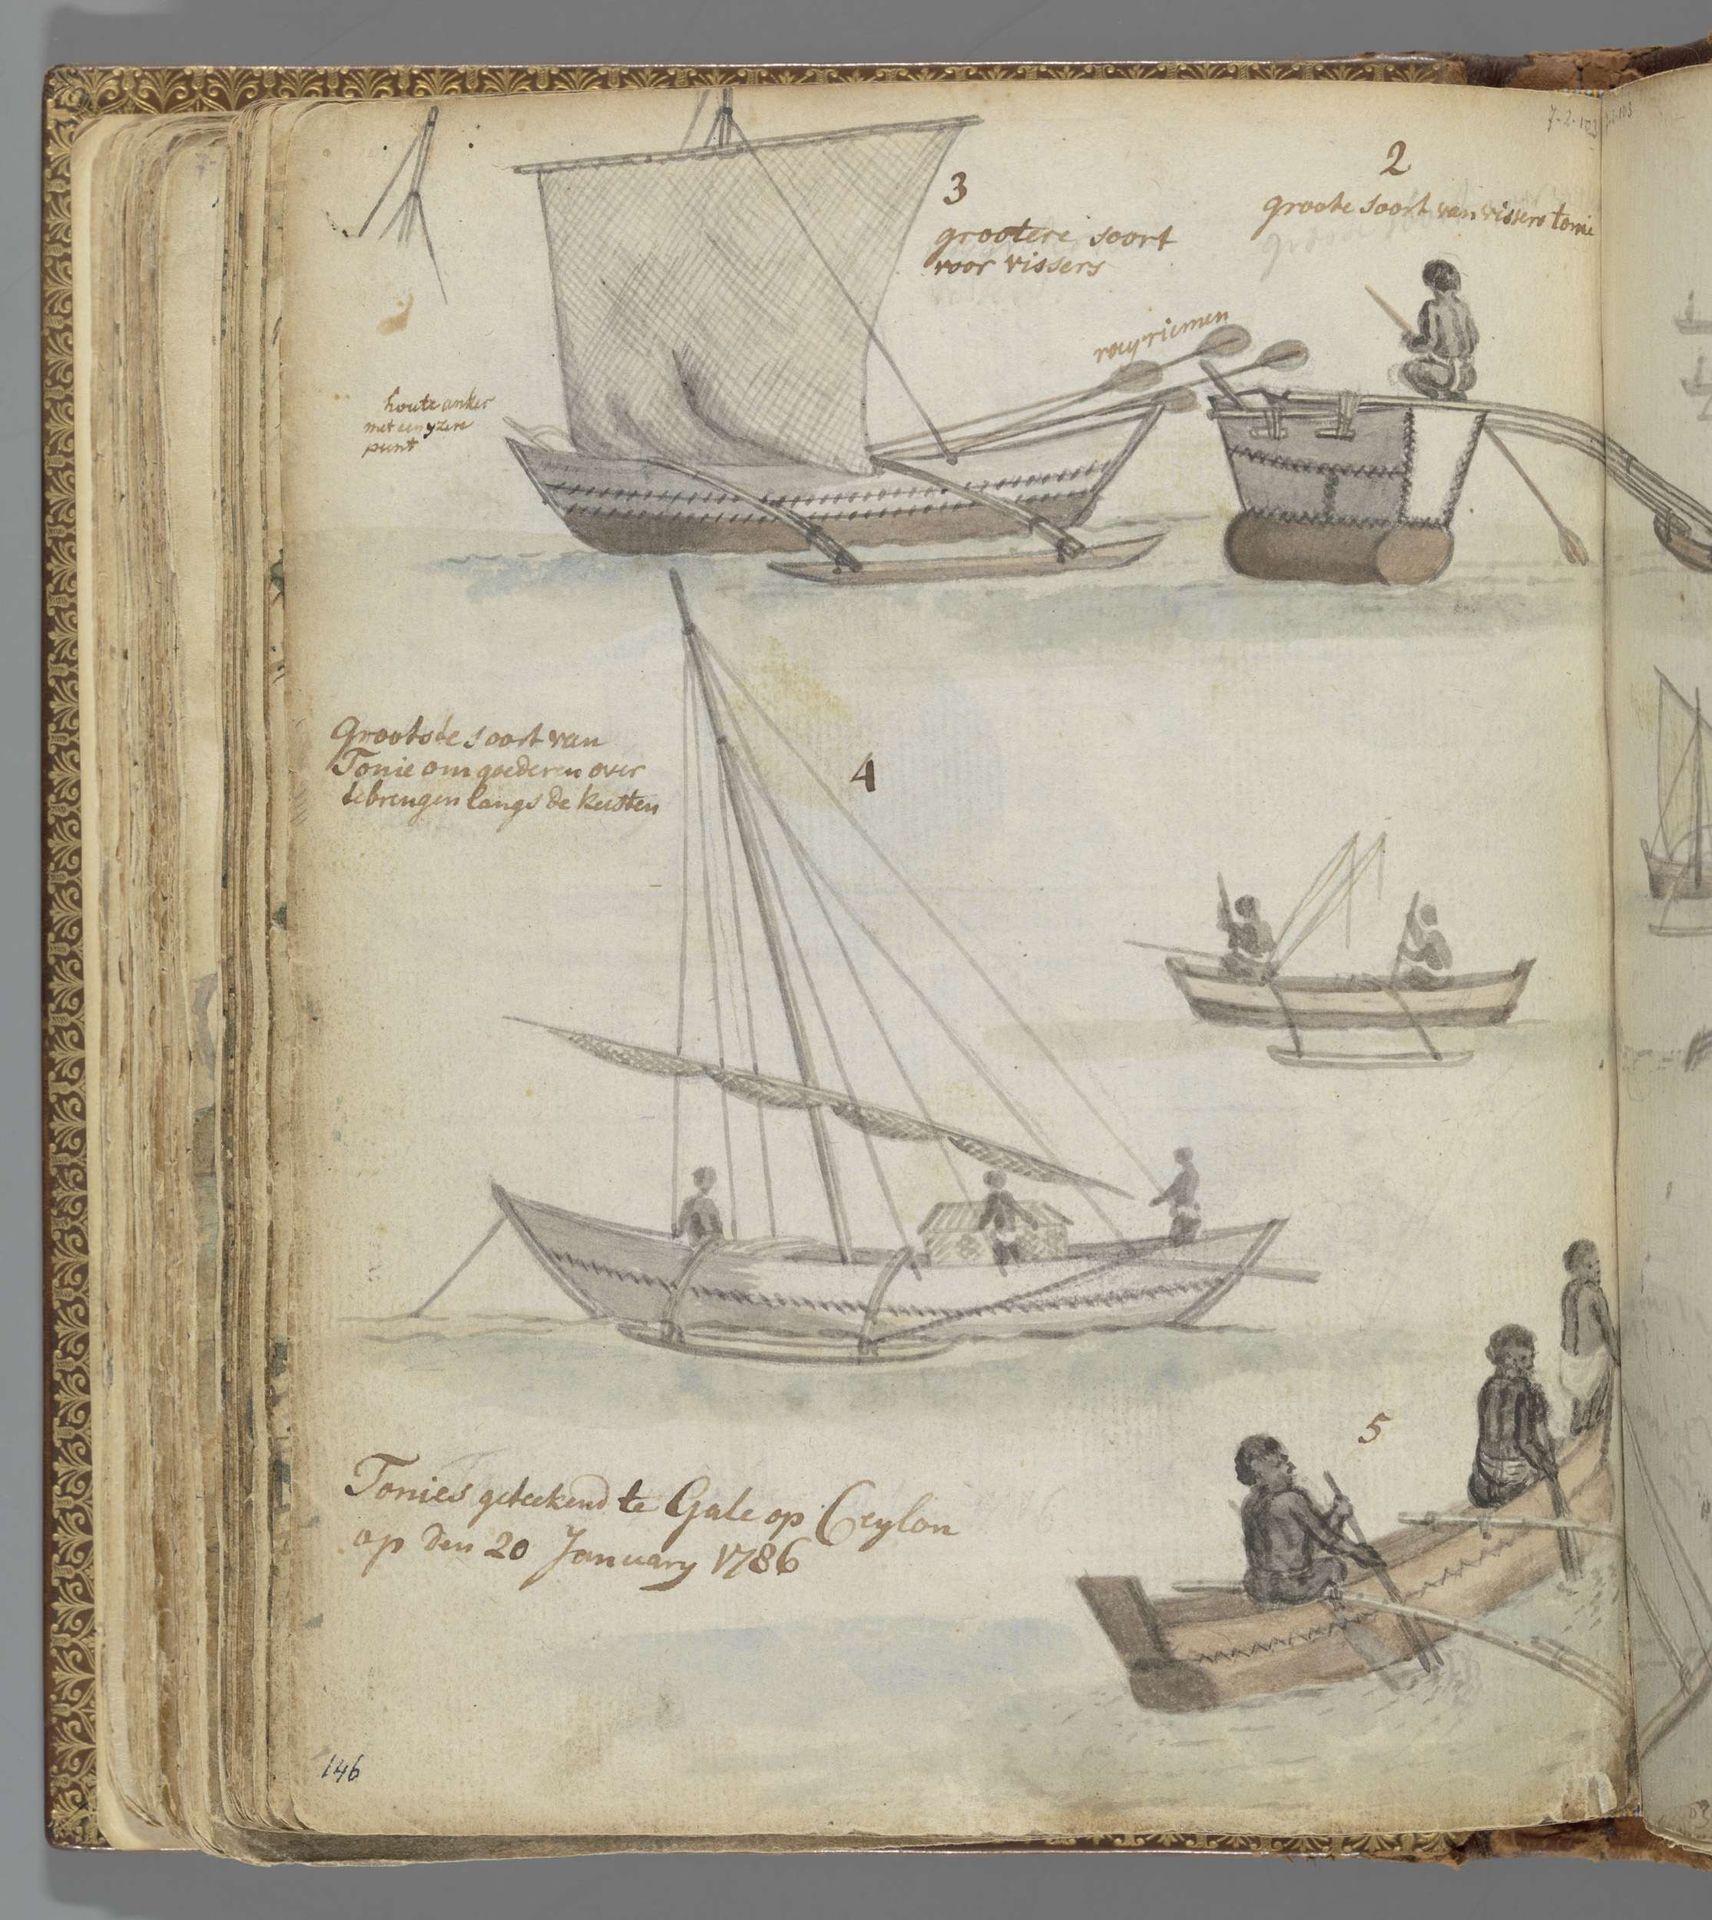 7-2-103
2
groote soort van vissers tonie
3
grootere soort
voor vissers
roeyriemen
houte anker
met een yzere
punt
Grootste soort van
Tonie om goederen over
te brengen langs de kusten
4
5
Tonies geteekend te Gale op Ceylon
op den 20 January 1786
146